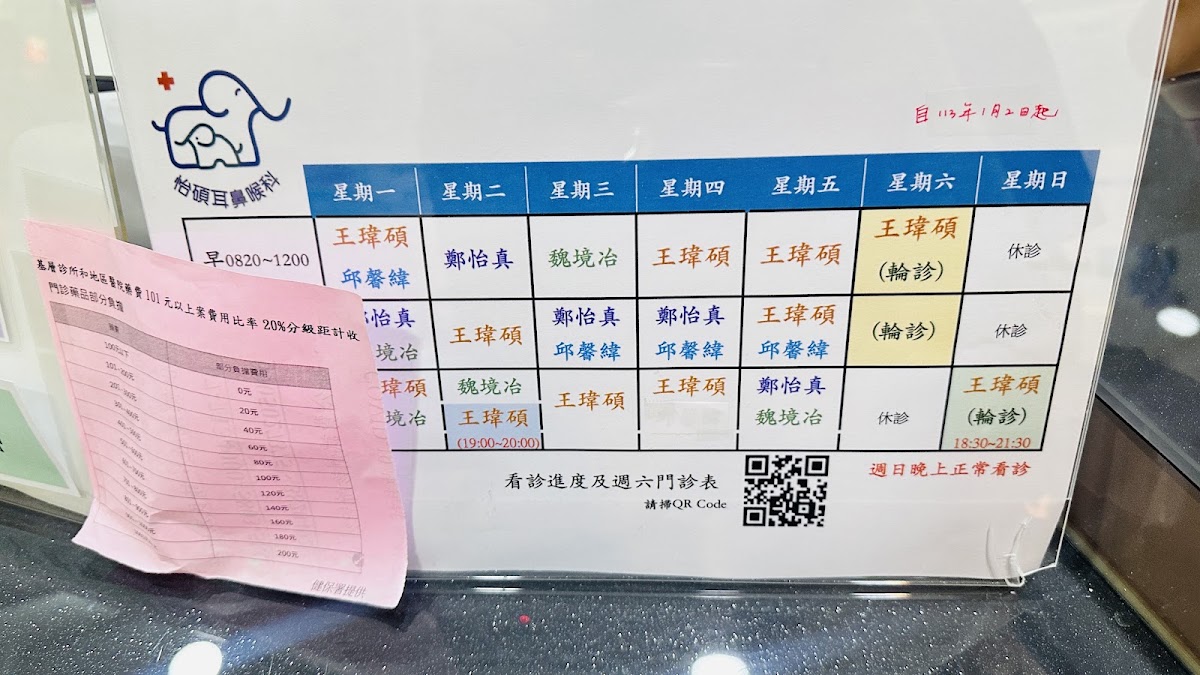 怡碩耳鼻喉科
自113年1月2日起
星期一 星期二 星期三 星期四 星期五 星期六 星期日
早0820~1200
王瑋碩
邱馨緯
鄭怡真
魏境冶
王瑋碩
王瑋碩
王瑋碩
(輪診)
休診
怡真
境冶
王瑋碩
鄭怡真
邱馨緯
鄭怡真
邱馨緯
王瑋碩
邱馨緯
(輪診)
休診
瑋碩
境冶
魏境冶
王瑋碩
(19:00~20:00)
王瑋碩
王瑋碩
鄭怡真
魏境冶
休診
王瑋碩
(輪診)
18:30~21:30
看診進度及週六門診表
請掃QR Code
週日晚上正常看診
基層診所和地區醫院藥費101元以上案費用比率20%分級距計收
門診藥品部分負擔
藥費 部分負擔費用
100元以下 0元
101~200元 20元
201~300元 40元
60元
80元
100元
120元
140元
160元
180元
200元
健保署提供